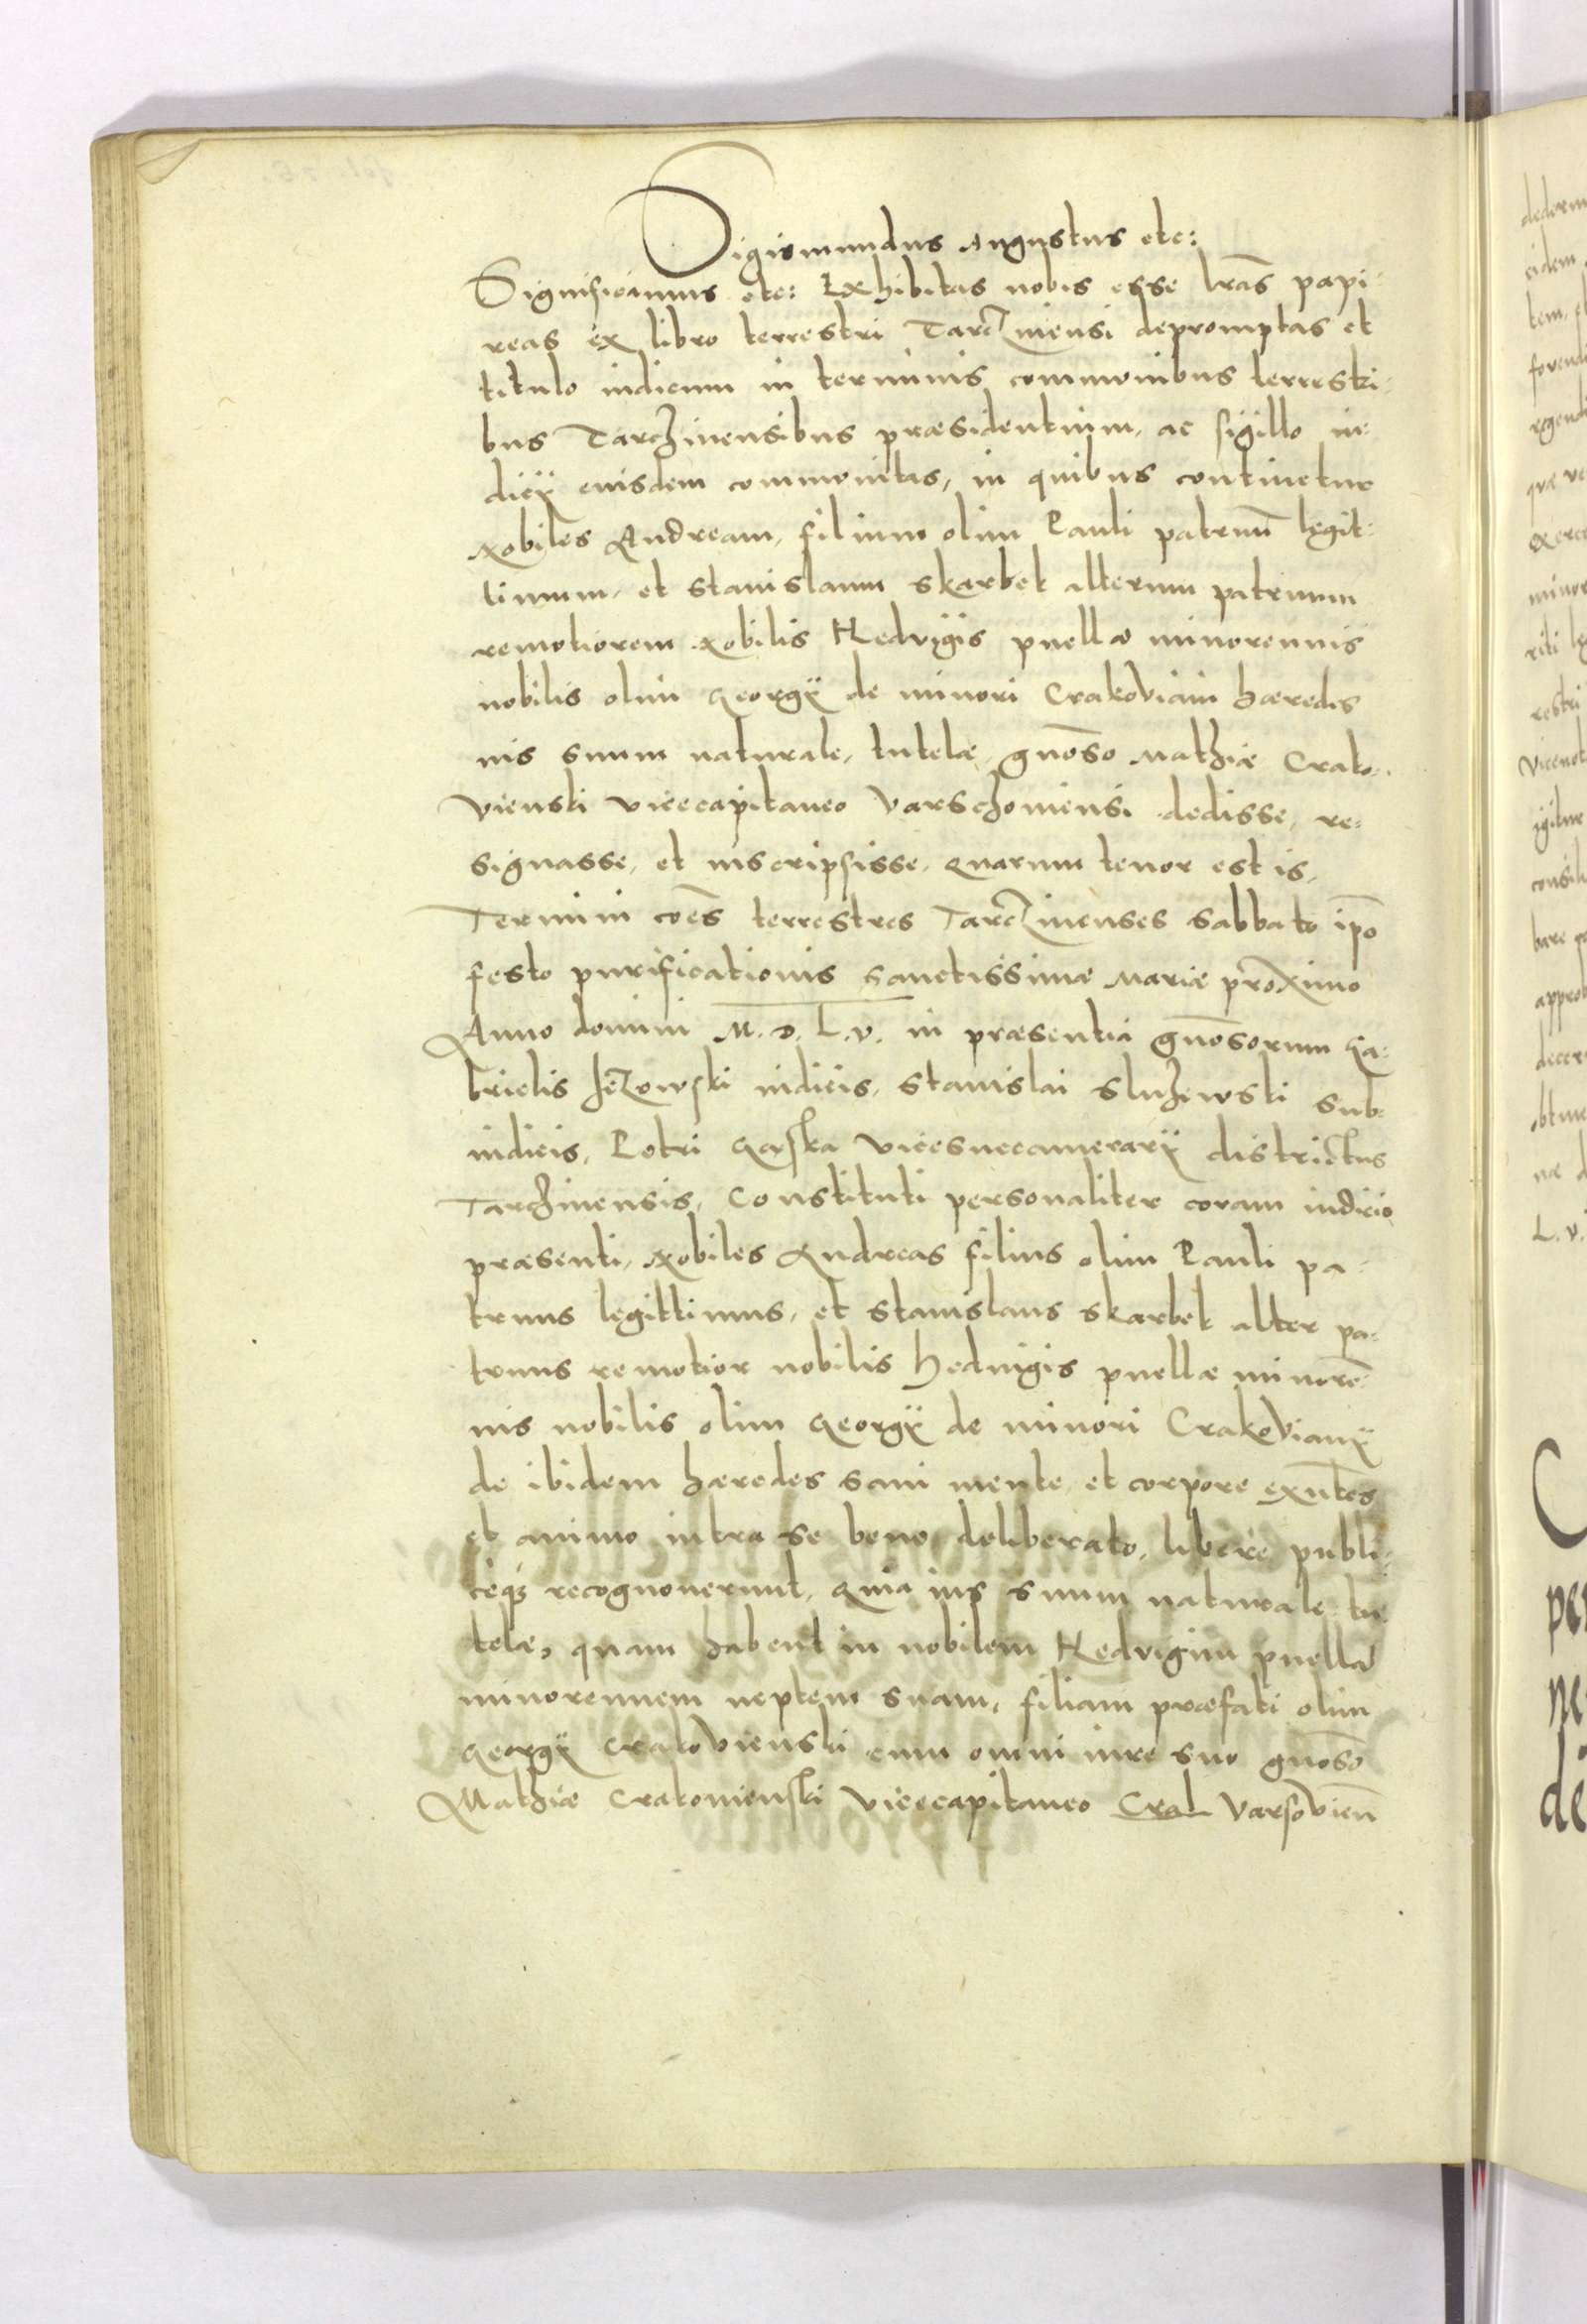 Sigismundus Augustus etc:
Significamus etc: Exhibitas nobis esse lrãs papi-
reas ex libro terrestri Tarczinensi depromptas et
titulo iudicum in terminis communibus terrestri-
bus Tarczinensibus præsidentium, ac sigillo iu-
dicÿ eiusdem communitas, in quibus continetur
Nobiles Andream, filium olim Pauli patruũ legit-
timum, et Stanislaum Skarbek alterum patruum
remotiorem Nobilis Hedvigis puellæ minorennis
nobilis olim Georgÿ de minori Crakoviain hæredis
ius suum naturale, tutelæ, gnõso Mathiæ Crako-
vienski vicecapitaneo Varschoviensi dedisse, re-
signasse, et inscripsisse, Quarum tenor est is,
Termini cões terrestres Tarczinenses Sabbato ipõ
festo purificationis sanctissimæ Mariæ proximo
Anno domini M. D. L. v. in præsentia gnõsorum Ga-
brielis Jezowski iudicis, Stanislai Sluzewski Sub-
iudicis, Petri Gaska vicesuccamerarÿ districtus
Tarczinensis, Constituti personaliter coram iudicio
præsenti, Nobiles Andreas filius olim Pauli pa-
truus legittimus, et Stanislaus Skarbek alter pa-
truus remotior nobilis Heduigis puellæ minorẽ-
nis nobilis olim Georgÿ de minori Crakovianÿ
de ibidem hæredes sani mente et corpore exñtes
et animo intra se bene deliberato, libere publi-
ceq3 recognouerunt, Quia ius suum naturale tu-
telæ, quam habent in nobilem Hedvigim puellã
minorennem neptem suam, filiam præfati olim
Georgÿ Crakovienski cum omni iure suo gnõso
Mathiæ Cracovienski vicecapitaneo Crak Varsovieñ